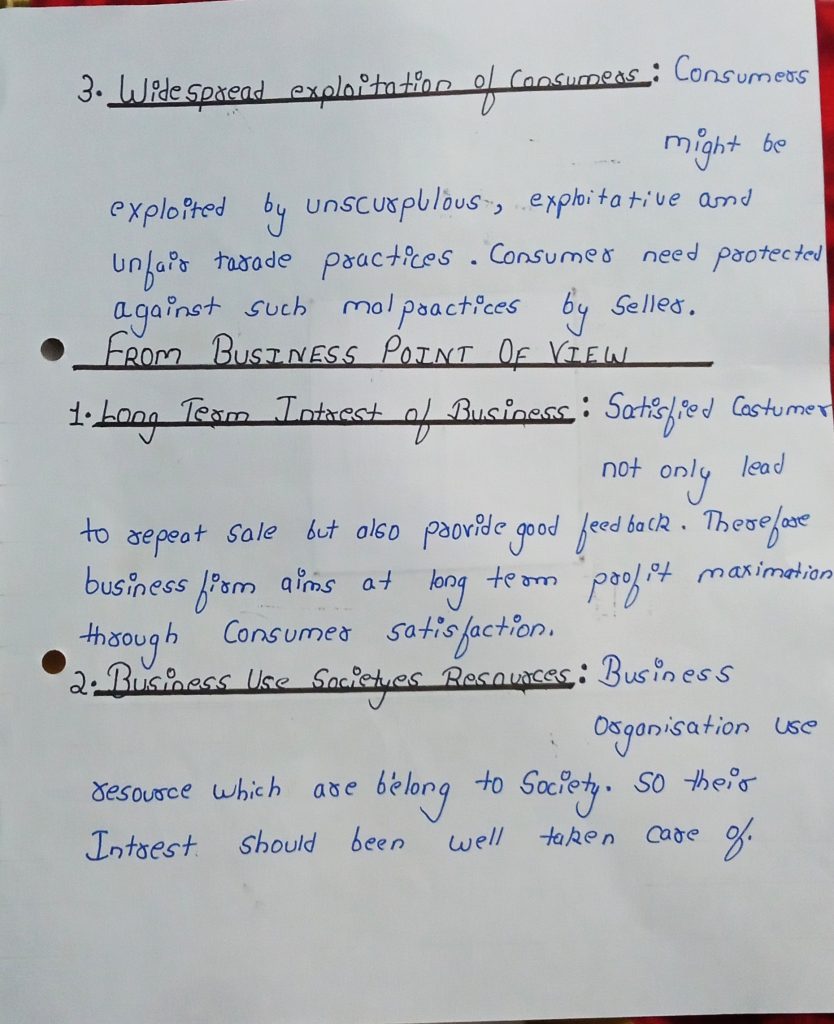 3. Widespread exploitation of Consumers : Consumers
might be
exploited by unscurpulous, exploitative and
unfair tarade practices. Consumer need protected
against such malpractices by Seller.
FROM BUSINESS POINT OF VIEW
1. Long Term Intrest of Business : Satisfied Costumer
not only lead
to repeat sale but also provide good feedback. Therefore
business firm aims at long term profit maximation
through Consumer satisfaction.
2. Business Use Societyes Resources : Business
Organisation use
resource which are belong to Society. So their
Intrest should been well taken care of.